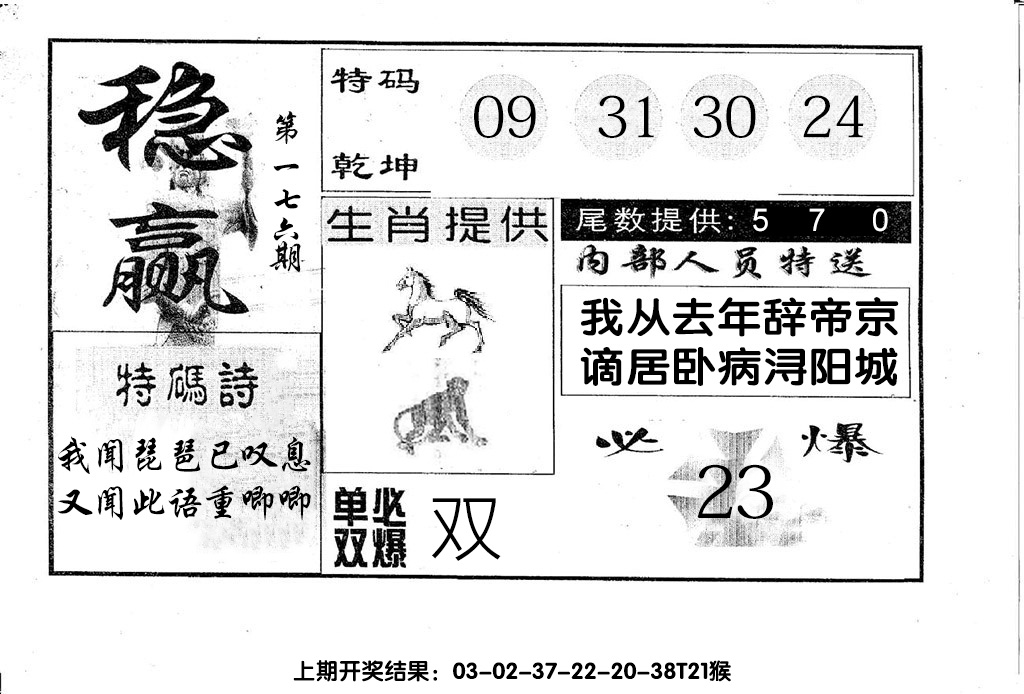 稳赢
第一七六期
特码
乾坤
09 31 30 24
生肖提供
尾数提供: 5 7 0
内部人员特送
我从去年辞帝京
谪居卧病浔阳城
特碼詩
我闻琵琶已叹息
又闻此语重唧唧
必爆
23
单双必爆
双
上期开奖结果：03-02-37-22-20-38T21猴